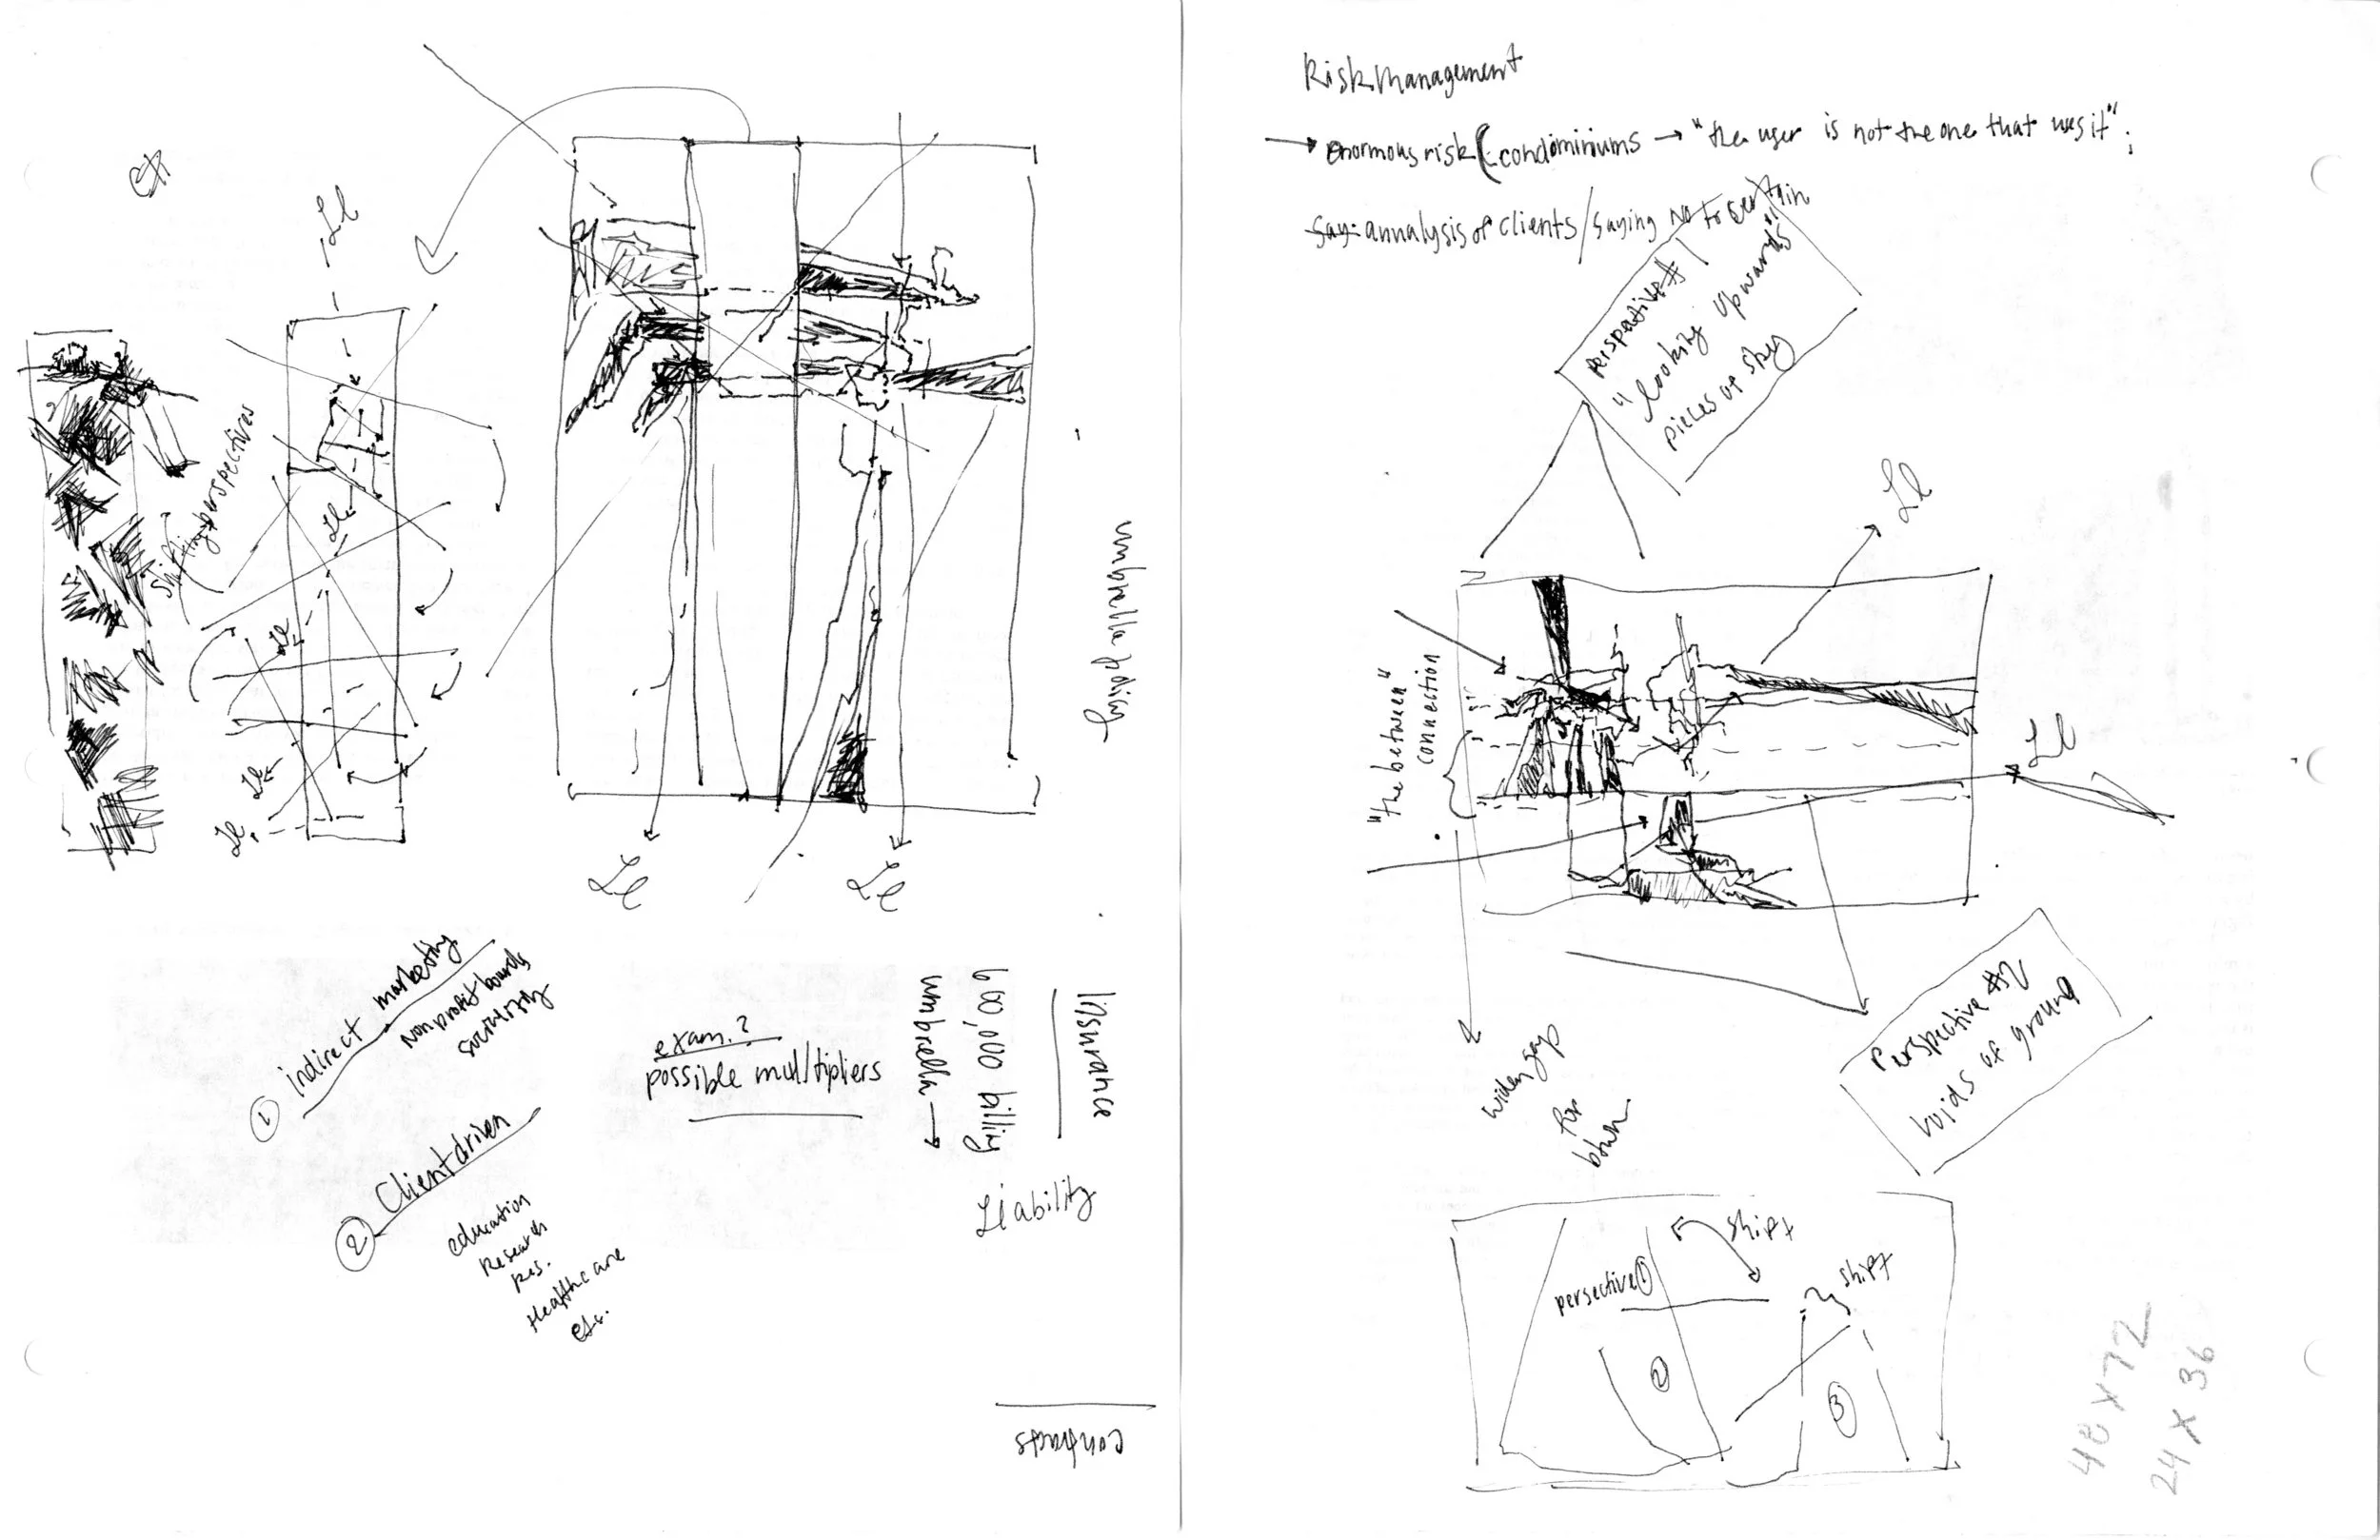 Risk Management
→ enormous risk (condominiums → "the user is not the one that uses it";
say: annalysis of clients / saying No to certain
perspective #1
"looking upwards"
pieces of sky
"the between"
connection
widen gap
for
Perspective #2
voids of ground
shift
shift
persective ①
②
③
48 x 72
24 x 36
shifting perspectives
umbrella policy
① indirect marketing
non profit boards
socializing
② Client driven
education
research
res.
Healthcare
etc.
exam.?
possible multipliers
insurance
600,000 billing
umbrella →
Liability
contracts